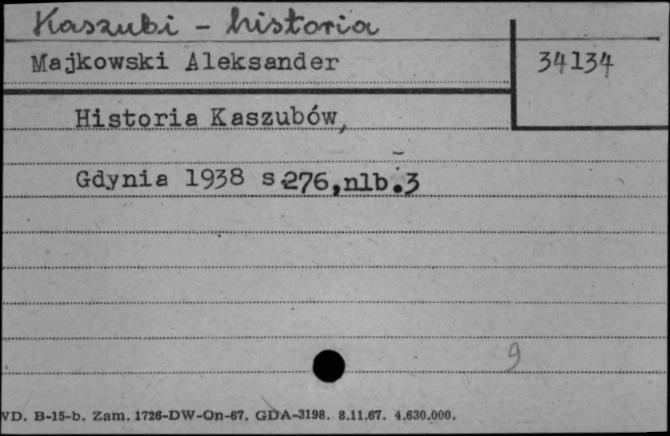 Kaszubi - historia
Majkowski Aleksander
34134
Historia Kaszubów,
Gdynia 1938 s.276,nlb.3
9
VD. B-15-b. Zam. 1726-DW-On-67. GDA-3198. 8.11.67. 4.630.000.